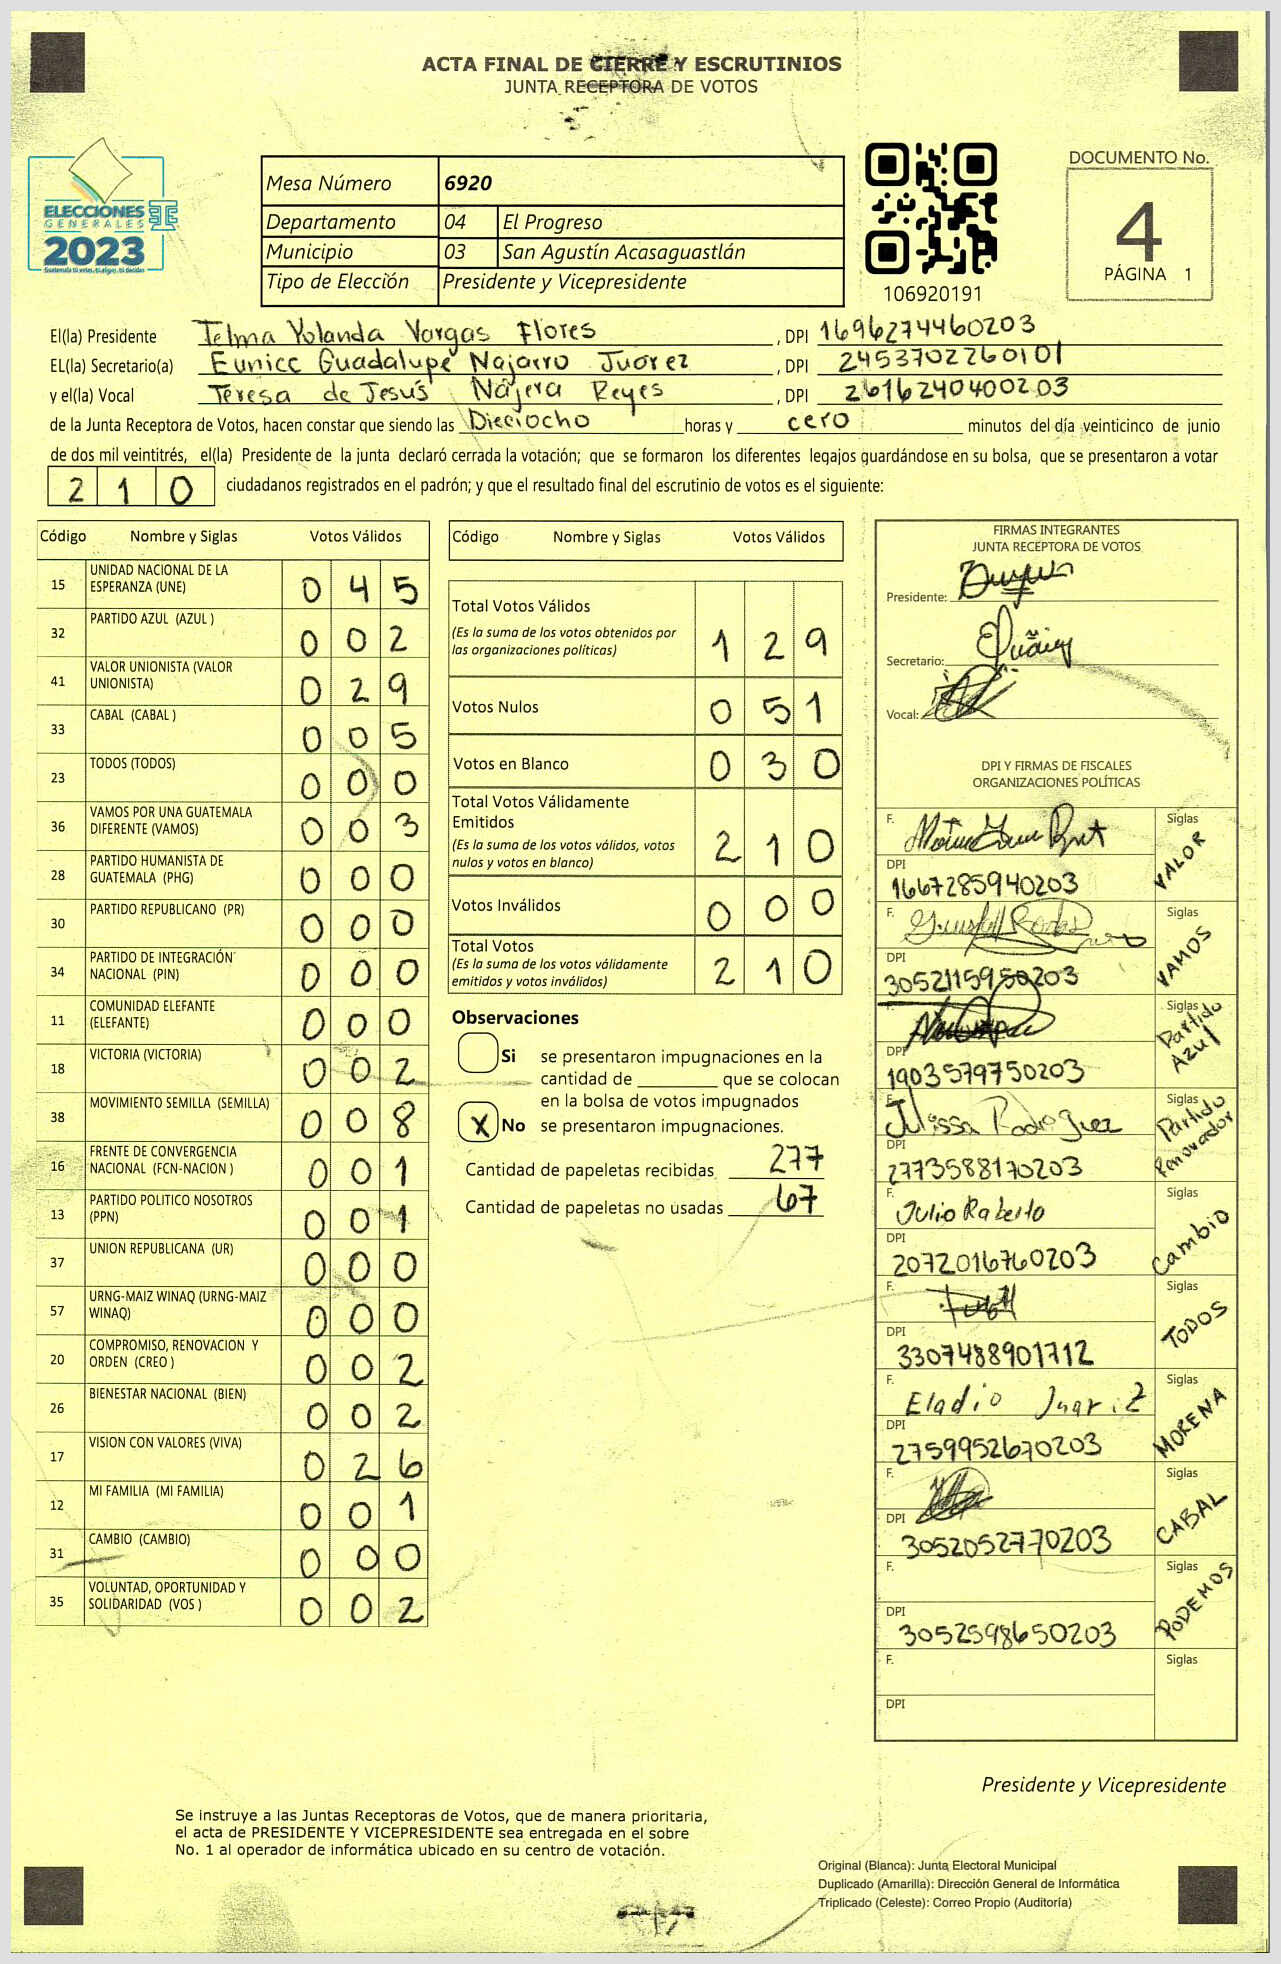 ACTA FINAL DE CIERRE Y ESCRUTINIOS
JUNTA RECEPTORA DE VOTOS
ELECCIONES
GENERALES
2023
Mesa Número 6920
Departamento 04 El Progreso
Municipio 03 San Agustín Acasaguastlán
Tipo de Elección Presidente y Vicepresidente
106920191
DOCUMENTO No.
4
PÁGINA 1
El(la) Presidente Telma Yolanda Vargas Flores , DPI 1696274460203
EL(la) Secretario(a) Eunice Guadalupe Najarro Juárez , DPI 2453702260101
y el(la) Vocal Teresa de Jesús Nájera Reyes , DPI 2616240400203
de la Junta Receptora de Votos, hacen constar que siendo las Dieciocho horas y cero minutos del día veinticinco de junio
de dos mil veintitrés, el(la) Presidente de la junta declaró cerrada la votación; que se formaron los diferentes legajos guardándose en su bolsa, que se presentaron a votar
210 ciudadanos registrados en el padrón; y que el resultado final del escrutinio de votos es el siguiente:
Código Nombre y Siglas Votos Válidos
15 UNIDAD NACIONAL DE LA ESPERANZA (UNE) 045
32 PARTIDO AZUL (AZUL ) 002
41 VALOR UNIONISTA (VALOR UNIONISTA) 029
33 CABAL (CABAL ) 005
23 TODOS (TODOS) 000
36 VAMOS POR UNA GUATEMALA DIFERENTE (VAMOS) 003
28 PARTIDO HUMANISTA DE GUATEMALA (PHG) 000
30 PARTIDO REPUBLICANO (PR) 000
34 PARTIDO DE INTEGRACIÓN NACIONAL (PIN) 000
11 COMUNIDAD ELEFANTE (ELEFANTE) 000
18 VICTORIA (VICTORIA) 002
38 MOVIMIENTO SEMILLA (SEMILLA) 008
16 FRENTE DE CONVERGENCIA NACIONAL (FCN-NACION ) 001
13 PARTIDO POLITICO NOSOTROS (PPN) 001
37 UNION REPUBLICANA (UR) 000
57 URNG-MAIZ WINAQ (URNG-MAIZ WINAQ) 000
20 COMPROMISO, RENOVACION Y ORDEN (CREO ) 002
26 BIENESTAR NACIONAL (BIEN) 002
17 VISION CON VALORES (VIVA) 026
12 MI FAMILIA (MI FAMILIA) 001
31 CAMBIO (CAMBIO) 000
35 VOLUNTAD, OPORTUNIDAD Y SOLIDARIDAD (VOS ) 002
Código Nombre y Siglas Votos Válidos
Total Votos Válidos
(Es la suma de los votos obtenidos por
las organizaciones políticas) 129
Votos Nulos 051
Votos en Blanco 030
Total Votos Válidamente
Emitidos
(Es la suma de los votos válidos, votos
nulos y votos en blanco) 210
Votos Inválidos 000
Total Votos
(Es la suma de los votos válidamente
emitidos y votos inválidos) 210
Observaciones
Si se presentaron impugnaciones en la
cantidad de ________ que se colocan
en la bolsa de votos impugnados
X No se presentaron impugnaciones.
Cantidad de papeletas recibidas 277
Cantidad de papeletas no usadas 67
FIRMAS INTEGRANTES
JUNTA RECEPTORA DE VOTOS
Presidente:
Secretario:
Vocal:
DPI Y FIRMAS DE FISCALES
ORGANIZACIONES POLÍTICAS
F. Siglas VALOR
DPI 1667285940203
F. Siglas VAMOS
DPI 3052115950203
F. Siglas Partido Azul
DPI 1903579750203
F. Julissa Rodriguez Siglas Partido Renovador
DPI 2773588170203
F. Julio Raberto Siglas Cambio
DPI 2072016760203
F. Siglas TODOS
DPI 3307488901712
F. Eladio Juarez Siglas MORENA
DPI 2759952670203
F. Siglas CABAL
DPI 3052052770203
F. Siglas PODEMOS
DPI 3052598650203
F. Siglas
DPI
Presidente y Vicepresidente
Se instruye a las Juntas Receptoras de Votos, que de manera prioritaria,
el acta de PRESIDENTE Y VICEPRESIDENTE sea entregada en el sobre
No. 1 al operador de informática ubicado en su centro de votación.
Original (Blanca): Junta Electoral Municipal
Duplicado (Amarilla): Dirección General de Informática
Triplicado (Celeste): Correo Propio (Auditoría)